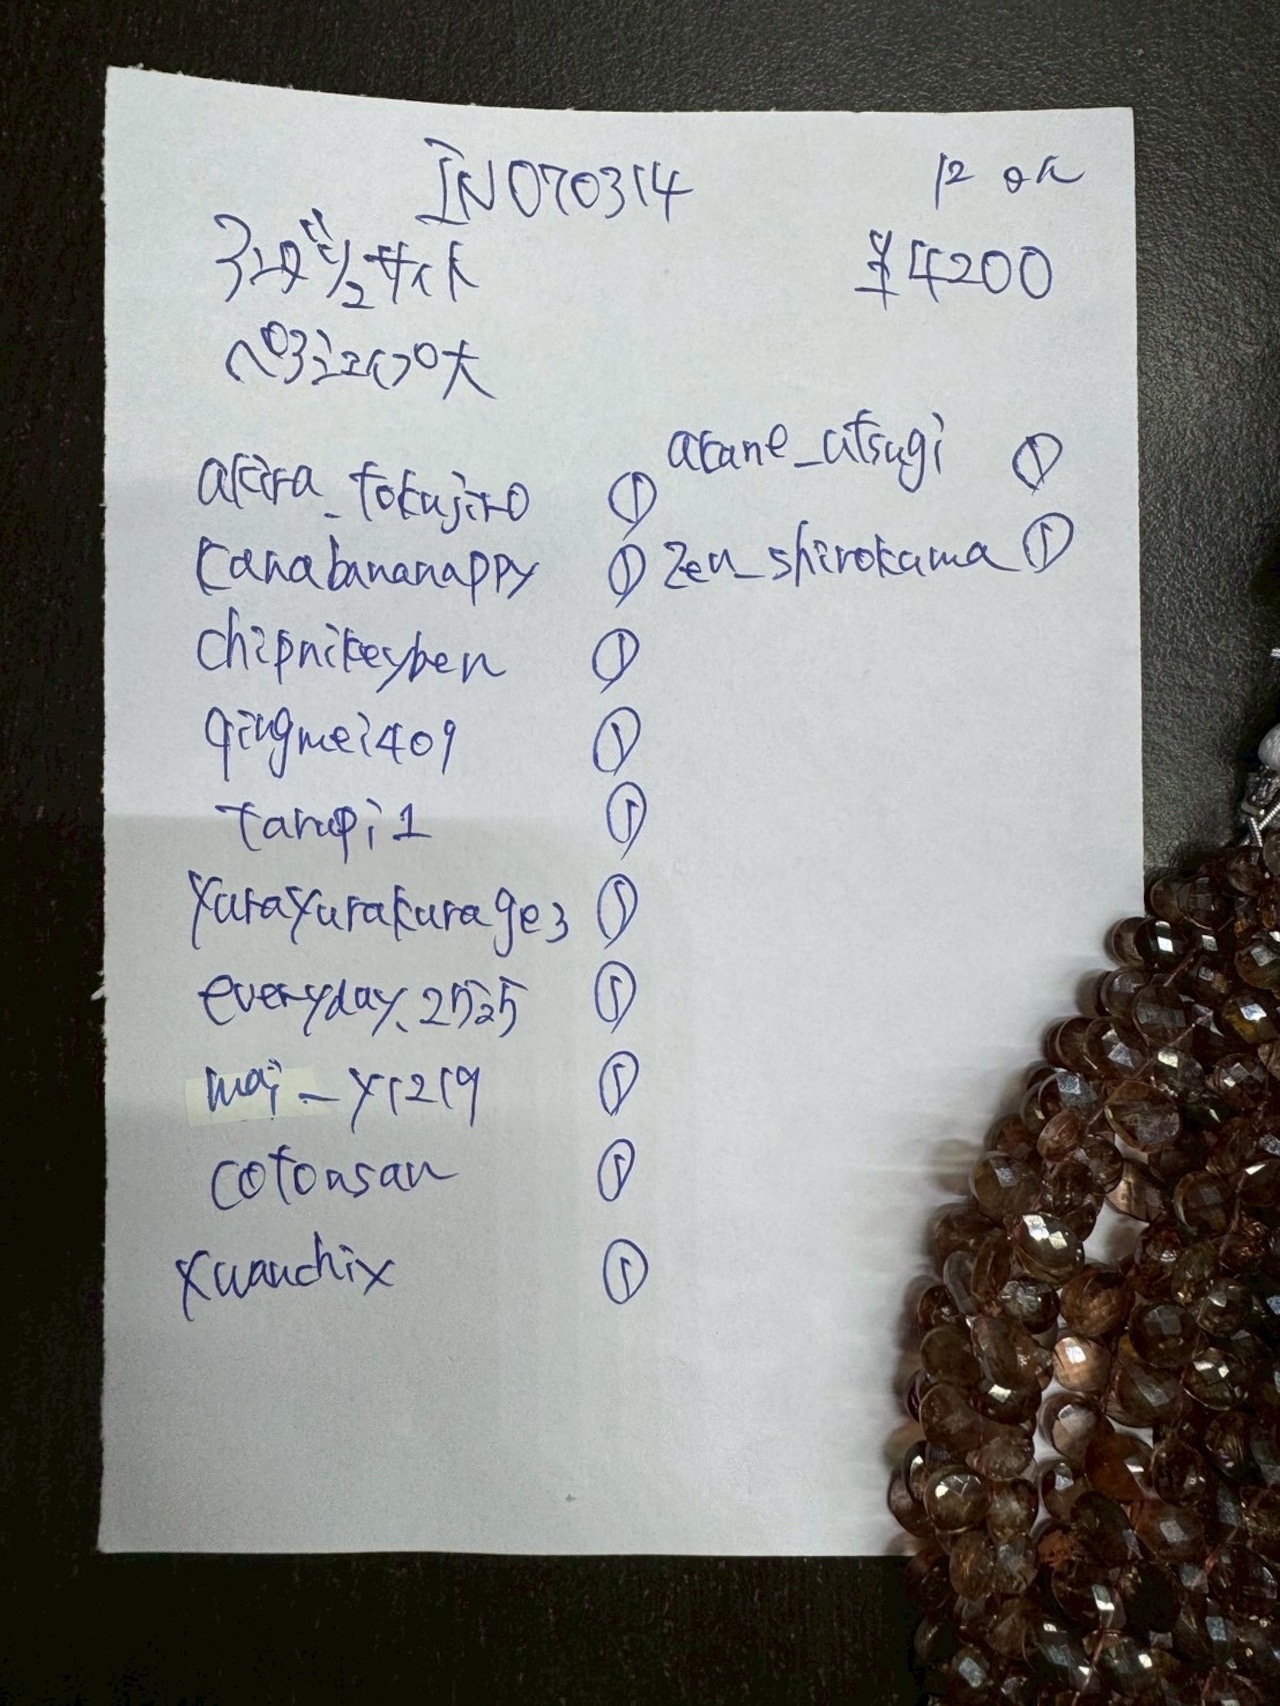 IN070314
12 本
¥4200
アンダリュサイト
ペアシェイプ大
akira_tokujiro ①
kanabananappy ①
chipnikeyben ①
qingmei409 ①
tarupi1 ①
yurayurakurage3 ①
everyday.2525 ①
mai_y1219 ①
cotonsan ①
xuanchix ①
akane_utsugi ①
zen_shirokama ①